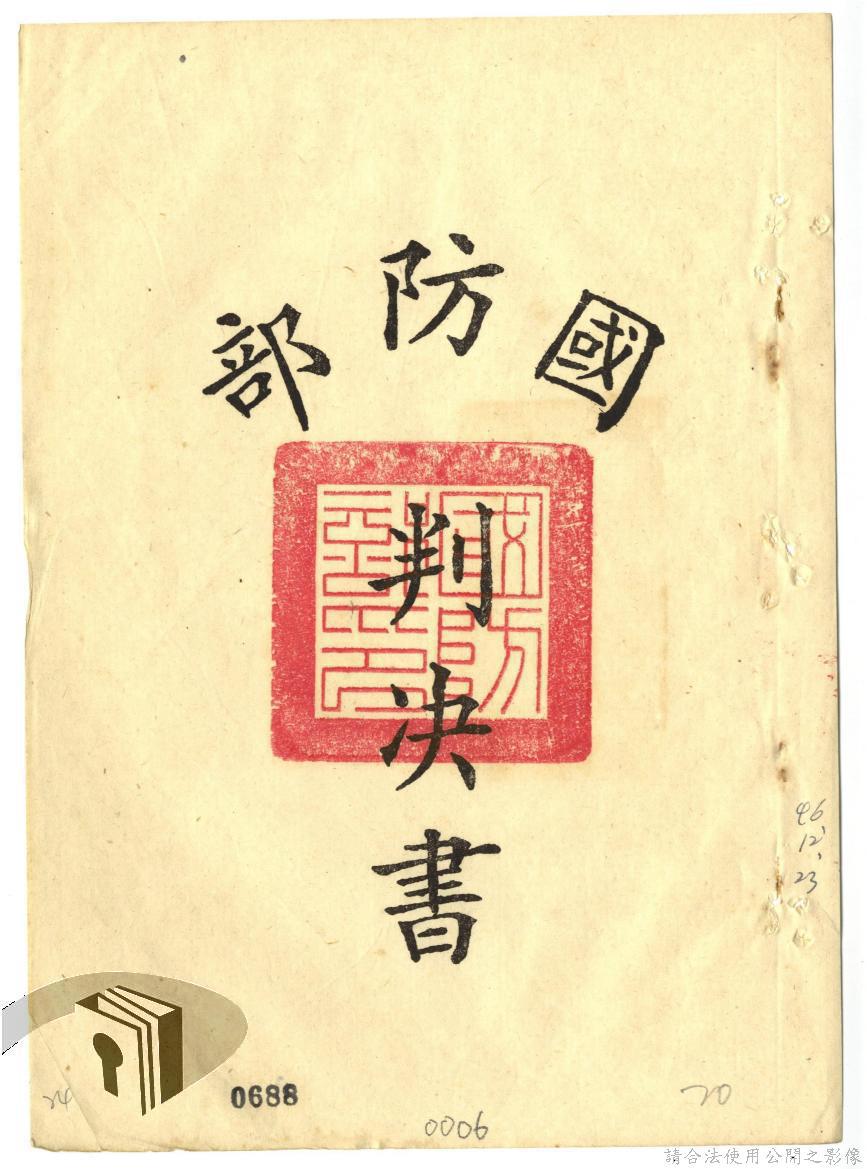 國防部
判決書
46
12,
23
24
0688
0006
20
請合法使用公開之影像